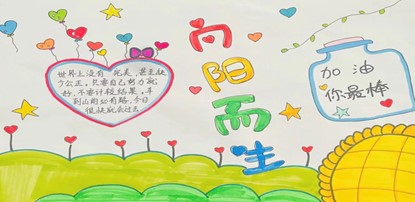 世界上没有完美,甚至缺
少公正。只要自己努力就
好,不要计较结果。车
到山前必有路。今日
很快就会过去
向阳而生
加油
你最棒